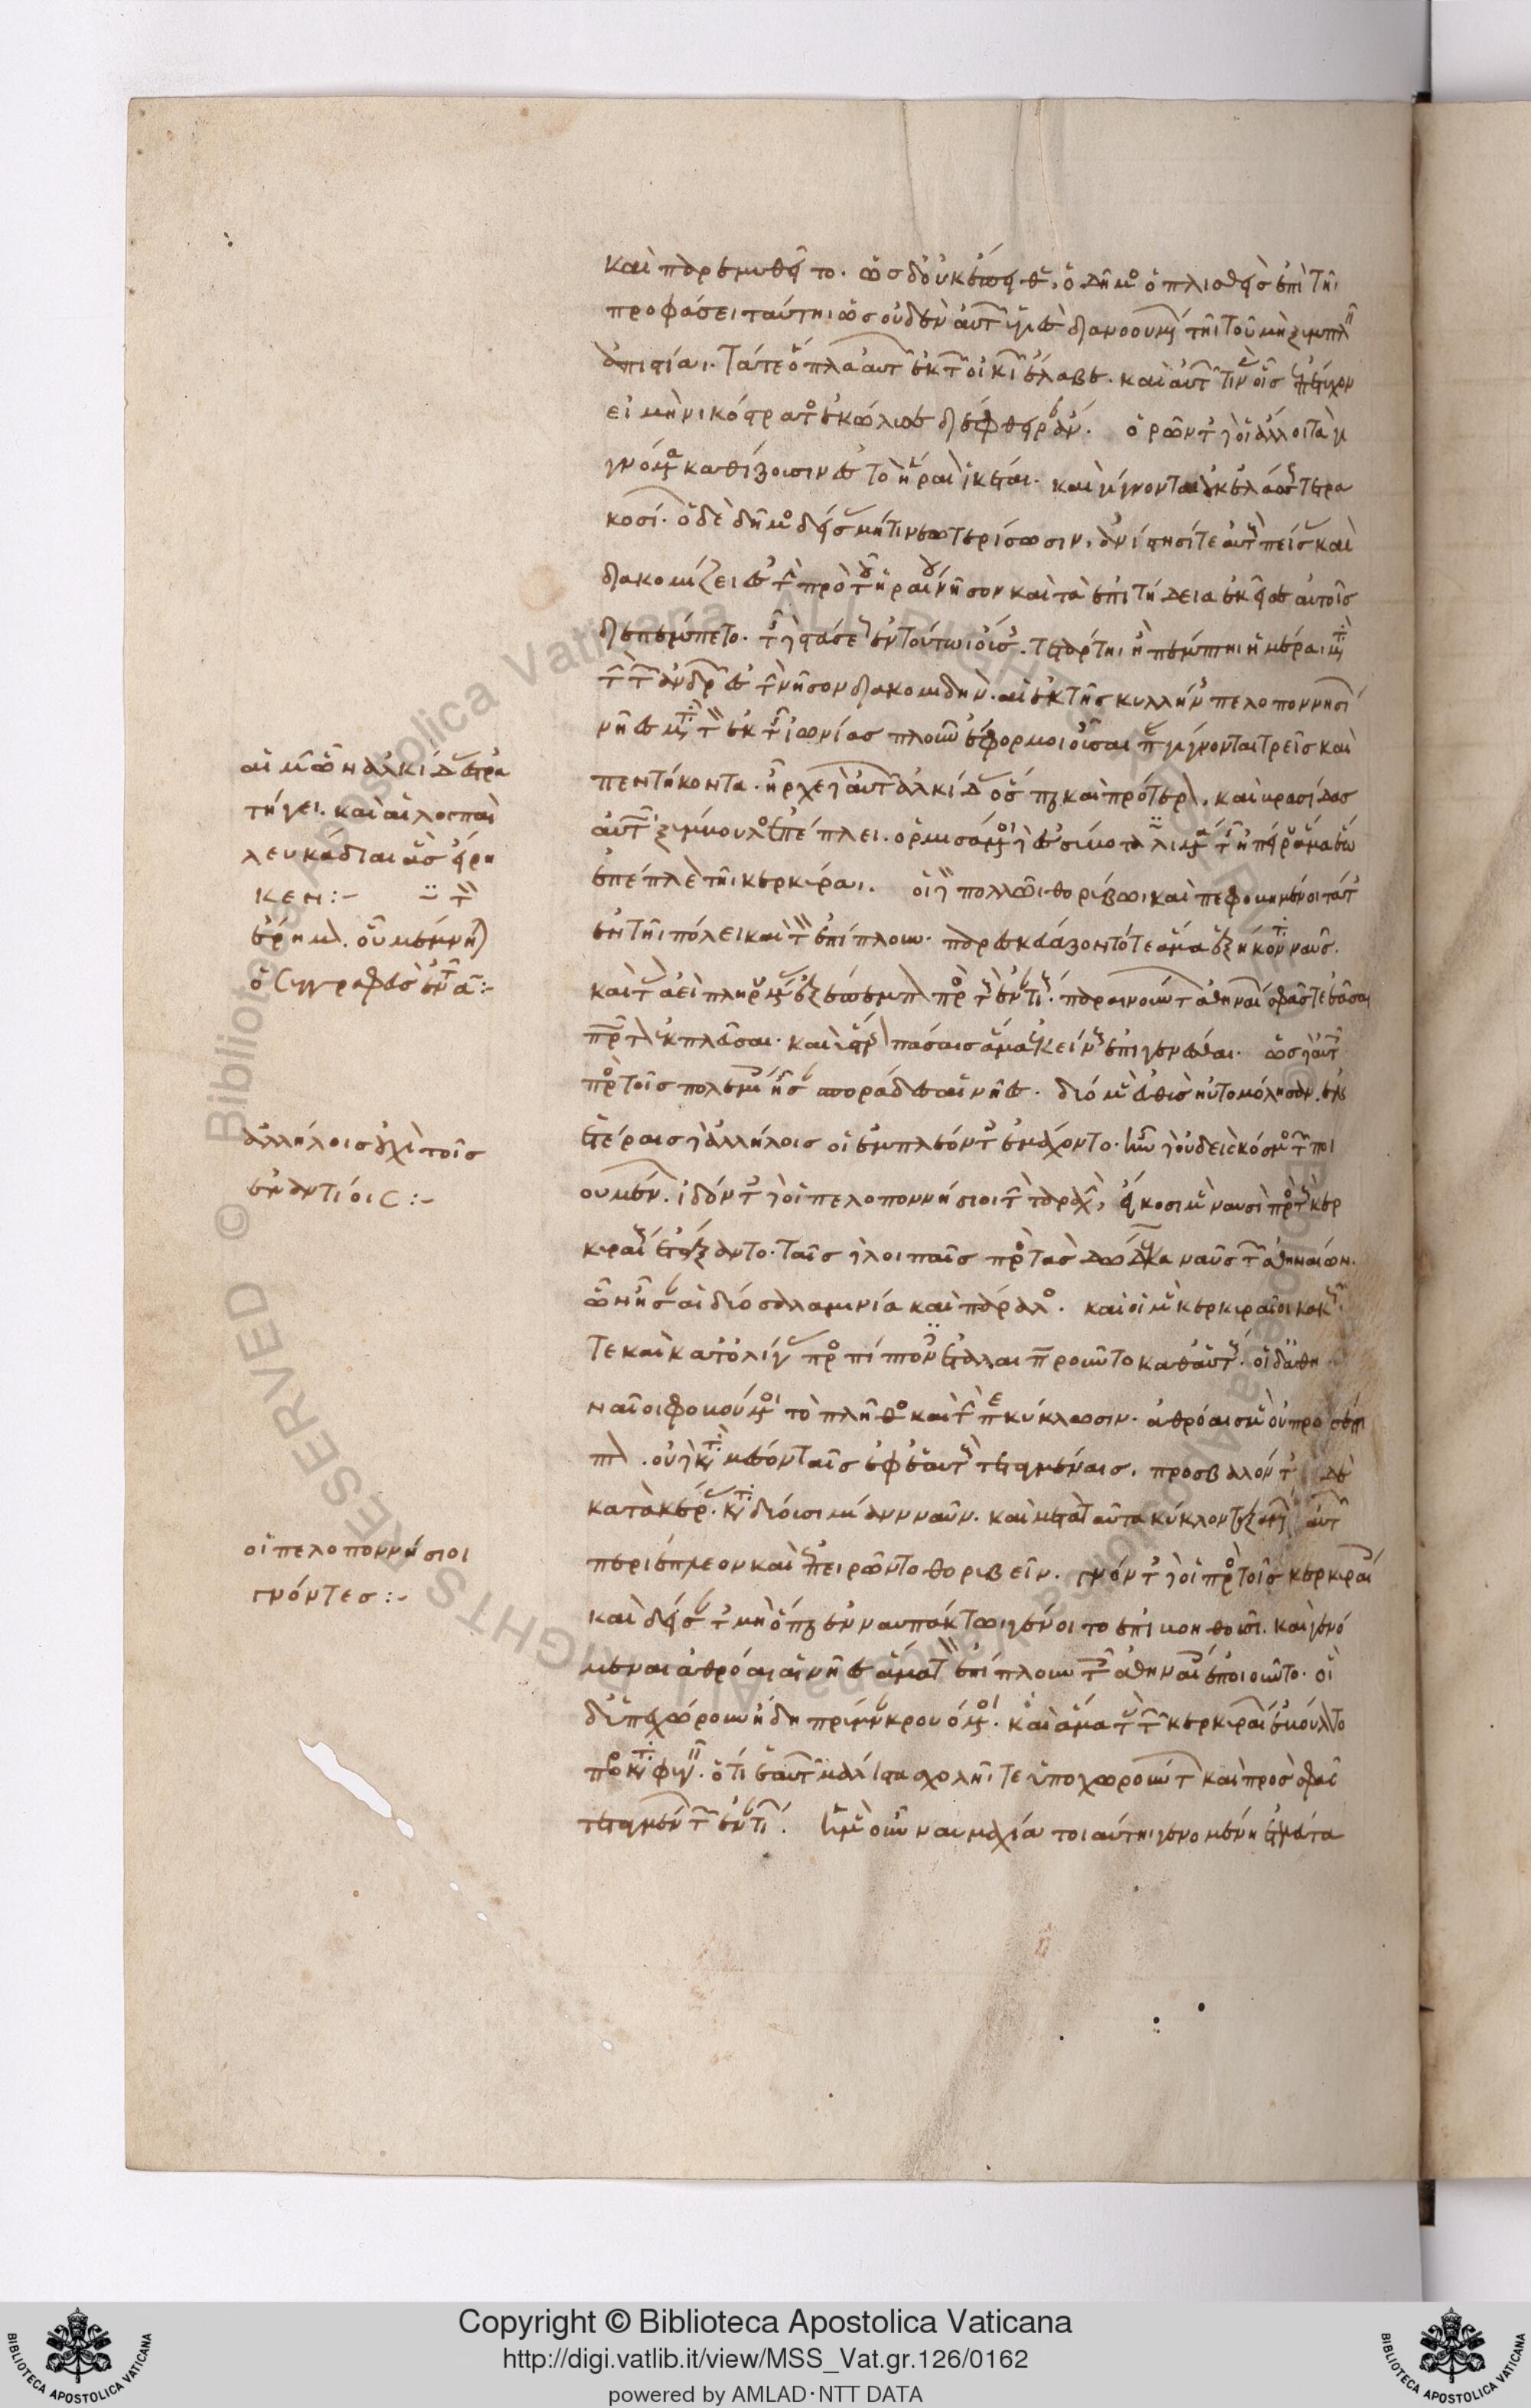 καὶ παρεμυθεῖτο. ὡς δ' οὐκ ἔπειθεν, ὁ δῆμος ὁπλισθεὶς ἐπὶ τῆι
προφάσει ταύτηι ὡς οὐδὲν αὐτῶν ὑγιὲς διανοουμένων τῆι τοῦ μὴ ξυμπλεῖν
ἀπιστίαι. τά τε ὅπλα αὐτῶν ἐκ τῶν οἰκιῶν ἔλαβε. καὶ αὐτῶν τινὰς οἷς ἐπέτυχον
εἰ μὴ νικόστρατος ἐκώλυσε διέφθειραν ἄν. ὁρῶντες δὲ οἱ ἄλλοι τὰ γι
γνόμενα καθίζουσιν ἐς τὸ ἥραιον ἱκέται. καὶ γίγνονται οὐκ ἐλάσσους τετρα
κοσίων. ὁ δὲ δῆμος δείσας μή τι νεωτερίσωσιν. ἀνίστησί τε αὐτοὺς πείσας καὶ
διακομίζει ἐς τὴν πρὸ τοῦ ἡραίου νῆσον καὶ τὰ ἐπιτήδεια ἐκεῖσε αὐτοῖς
διεπέμπετο. τῆς δὲ στάσεως ἐν τούτωι οὔσης. τετάρτηι ἢ πέμπτηι ἡμέραι μετὰ
τὴν τῶν ἀνδρῶν ἐς τὴν νῆσον διακομιδήν. αἱ ἐκ τῆς κυλλήνης πελοποννησίων
νῆες μετὰ τὸν ἐκ τῆς ἰωνίας πλοῦν ἔφορμοι οὖσαι παραγίγνονται τρεῖς καὶ
πεντήκοντα. ἦρχε δὲ αὐτῶν ἀλκίδας ὅσπερ καὶ πρότερον, καὶ βρασίδας
αὐτῶι ξύμβουλος ἐπέπλει. ὁρμισάμενοι δὲ ἐς σύβοτα λιμένα τῆς ἠπείρου ἅμα ἕω
ἐπέπλεον τῆι κερκύραι. οἱ δὲ πολλῶι θορύβωι καὶ πεφοβημένοι τά τ'
ἐν τῆι πόλει καὶ τὸν ἐπίπλουν. παρεσκευάζοντό τε ἅμα ἑξήκοντα ναῦς.
καὶ τὰς ἀεὶ πληρουμένας ἐξέπεμπον πρὸς τοὺς ἐναντίους. παραινούντων ἀθηναίων σφᾶς τε ἐᾶσαι
πρῶτον ἐκπλεῦσαι. καὶ ὕστερον πάσαις ἅμα ἐκείνους ἐπιγενέσθαι. ὡς δὲ αὐτοῖς
πρὸς τοῖς πολεμίοις ἦσαν σποράδες αἱ νῆες. δύο μὲν εὐθὺς ηὐτομόλησαν. ἐν
ἑτέραις δὲ ἀλλήλοις οἱ ἐμπλέοντες ἐμάχοντο. ἦν δὲ οὐδεὶς κόσμος τῶν ποι
ουμένων. ἰδόντες δὲ οἱ πελοποννήσιοι τὴν ταραχὴν, εἴκοσι μὲν ναυσὶ πρὸς τοὺς κερ
κυραίους ἐτάξαντο. ταῖς δὲ λοιπαῖς πρὸς τὰς δώδεκα ναῦς τῶν ἀθηναίων.
ὧν ἦσαν αἱ δύο σαλαμινία καὶ πάραλος. καὶ οἱ μὲν κερκυραῖοι κακῶς
τε καὶ κατ' ὀλίγας προσπίπτοντες ἐταλαιπωροῦντο καθ' αὑτούς. οἱ δ' ἀθη
ναῖοι φοβούμενοι τὸ πλῆθος καὶ τὴν περικύκλωσιν. ἀθρόαις μὲν οὐ προσέπι
πτον. οὐδὲ κατὰ μέσον ταῖς ἐφ' ἑαυτοὺς τεταγμέναις. προσβαλόντες δὲ
κατὰ κέρας. καταδύουσι μίαν ναῦν. καὶ μετὰ ταῦτα κύκλον ταξαμένων αὐτῶν
περιέπλεον καὶ ἐπειρῶντο θορυβεῖν. γνόντες δὲ οἱ πρὸς τοῖς κερκυραίοις
καὶ δείσαντες μὴ ὅπερ ἐν ναυπάκτωι γένοιτο ἐπιβοηθοῦσι. καὶ γενό
μεναι ἀθρόαι αἱ νῆες ἅμα τὸν ἐπίπλουν τοῖς ἀθηναίοις ἐποιοῦντο. οἱ
δ' ὑπεχώρουν ἤδη πρύμναν κρουόμενοι. καὶ ἅμα τὰς τῶν κερκυραίων ἐβούλοντο
προκαταφυγεῖν. ὅτι ἑαυτῶν μάλιστα σχολῆι τε ὑποχωρούντων καὶ πρὸς σφᾶς
τεταγμένων τῶν ἐναντίων. ἡ μὲν οὖν ναυμαχία τοιαύτη γενομένη ἐτελεύτα
αἱ μὲν ὧν ἀλκίδας ἐστρα
τήγει. καὶ αἱ λοιπαὶ
λευκάδιαι ἃς εἴρη
κεν :-
ὁ συγγραφεὺς
ἀλλήλοις οὐχὶ τοῖς
ἐναντίοις :-
οἱ πελοποννήσιοι
γνόντες :-
Copyright © Biblioteca Apostolica Vaticana
http://digi.vatlib.it/view/MSS_Vat.gr.126/0162
powered by AMLAD·NTT DATA
BIBLIOTECA APOSTOLICA VATICANA
BIBLIOTECA APOSTOLICA VATICANA
© Biblioteca Apostolica Vaticana ALL RIGHTS RESERVED